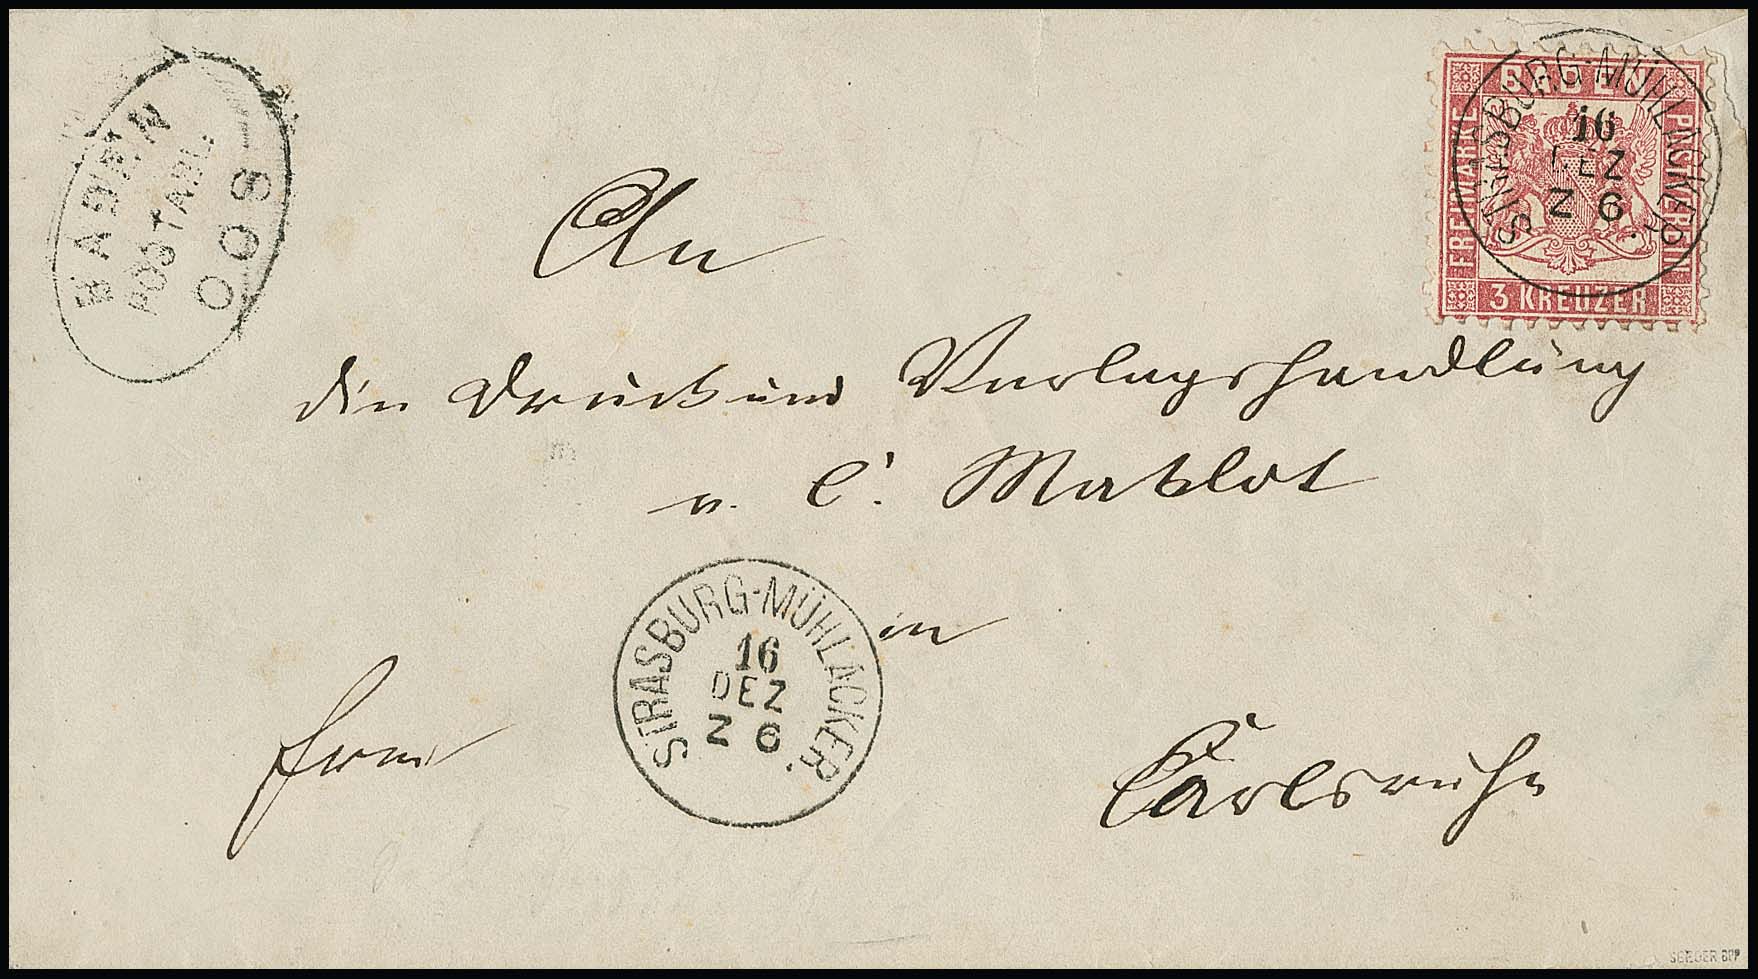 BADEN
POSTABL.
OOS
BADEN
FREIMARKE
POSTVEREIN
3 KREUZER
STRASBURG-MÜHLACKER.
16
DEZ
Z 6
An
die Druck und Verlagshandlung
v. C. Macklot
in
STRASBURG-MÜHLACKER.
16
DEZ
Z 6
frei
Carlsruhe
SEEGER BPP